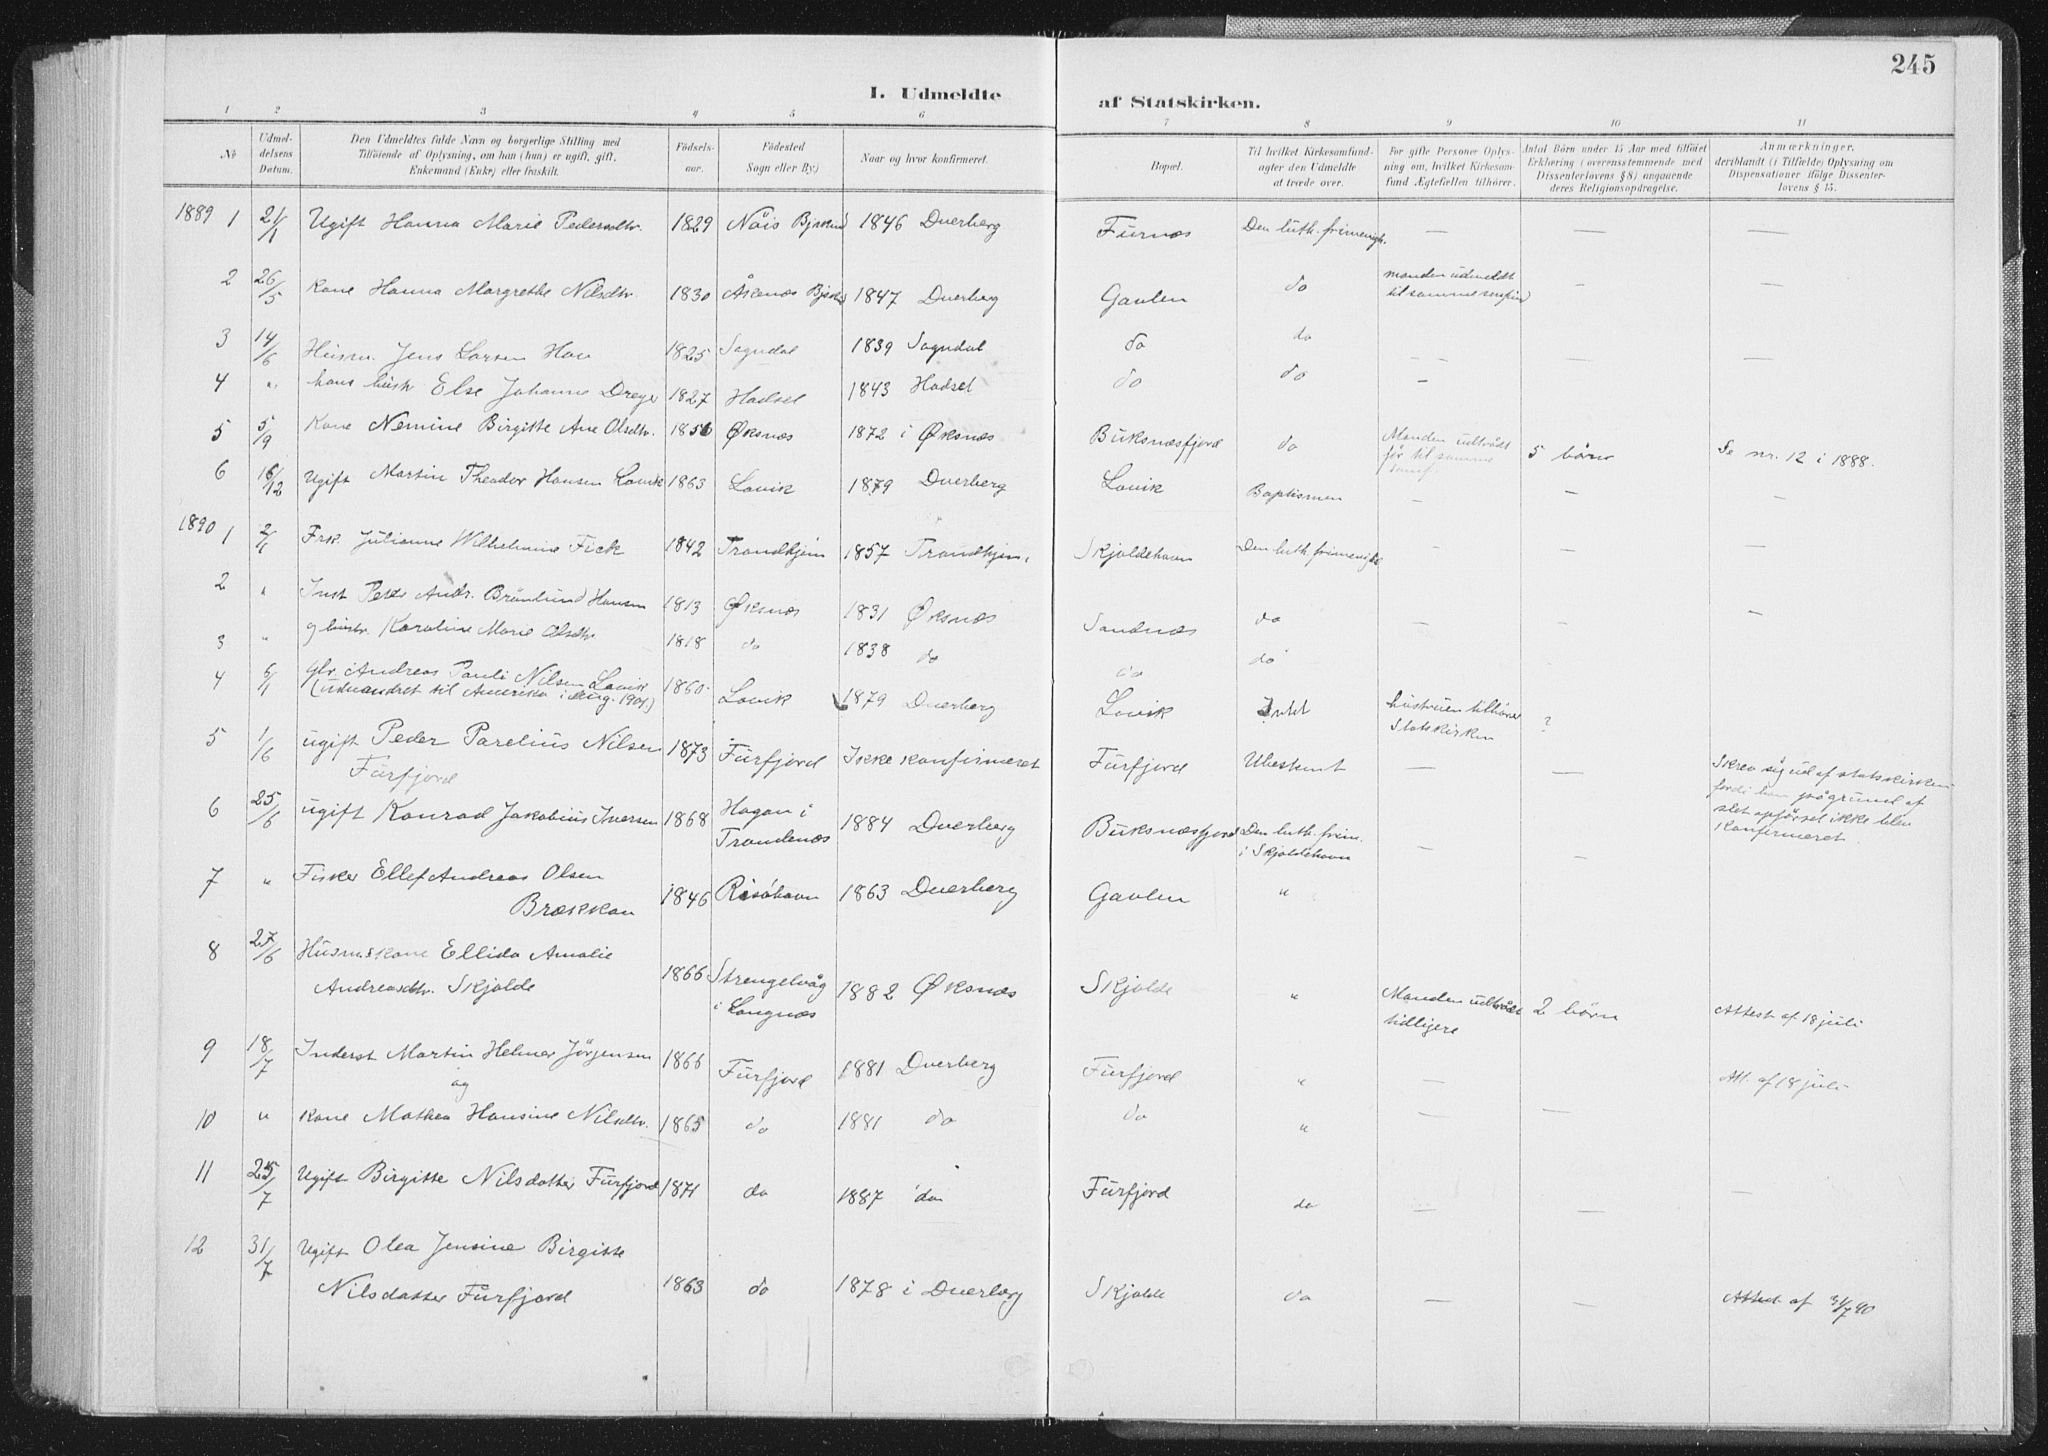 245
I. Udmeldte af Statskirken.
1 2 3 4 5 6 7 8 9 10 11
No
Udmel-
delsens
Datum.
Den Udmeldtes fulde Navn og borgerlige Stilling med
Tilföiende af Oplysning, om han (hun) er ugift, gift,
Enkemand (Enke) eller fraskilt.
Födsels-
aar.
Födested
Sogn eller By.)
Naar og hvor konfirmeret.
Bopæl.
Til hvilket Kirkesamfund
agter den Udmeldte
at træde over.
For gifte Personer Oplys-
ning om, hvilket Kirkesam-
fund Ægtefællen tilhörer.
Antal Börn under 15 Aar med tilföiet
Erklæring (overensstemmende med
Dissenterlovens § 8) angaaende
deres Religionsopdragelse.
Anmærkninger,
deriblandt (i Tilfælde) Oplysning om
Dispensationer ifölge Dissenter-
lovens § 15.
1889 1 2/1 Ugift Hanna Marie Pedersdtr. 1829 Nöis Bjørkind 1846 Dverberg Furnæs Den luth. frimenigh. — — —
2 26/5 Kone Hanna Margrethe Nilsdtr. 1830 Åknæs 1847 Dverberg Gavlen do manden udmeldt
til samme
3 14/6 Husm. Jens Larsen Hau 1825 Sogndal 1839 Sogndal do do — — —
4 " hans hustr Else Johanne Dreyer 1827 Hadsel 1843 Hadsel do do —
5 5/9 Kone Nemine Birgitte Ane Olsdtr. 1856 Øksnæs 1872 i Øksnæs Buksnæsfjord do Manden udtrådt
før til samme
samf. 5 börn Se nr. 12 i 1888.
6 16/12 Ugift Martin Theodor Hansen Lovik 1863 Lovik 1879 Dverberg Lovik Baptismen — — —
1890 1 2/1 Frk. Julianne Wilhelmine Fick 1842 Trondhjem 1857 Trondhjem. Skjoldehavn Den luth. frimenigh. — — —
2 " Inst Peder Andr. Brönlund Hansen 1813 Øksnæs 1831 Øksnæs Sandnæs do — — —
3 " og hustr. Karoline Marie Olsdtr. 1818 do 1838 do do do
4 6/1 Andreas Pauli Nilsen Lovik
(udvandret til Amerika i aug. 1901.) 1860. Lovik 1879 Dverberg Lovik Intet hustruen tilhörer
Statskirken ?
5 1/6 ugift Peder Parelius Nilsen
Furfjord 1873 Furfjord Ikke konfirmeret Furfjord Ubestemt — — Skrev sig ud af statskirken
fordi han på grund af
slet opförsel ikke blev
konfirmeret.
6 25/6 ugift Konrad Jakobius Iversen 1868 Hagan i
Trondenæs 1884 Dverberg Buksnæsfjord Den luth. frim.
i Skjoldehavn — —
7 " Fisker Ellef Andreas Olsen
Brækkan 1846 Risöhavn 1863 Dverberg Gavlen "
8 27/6 Husm.skone Ellida Amalie
Andreasdtr. Skjolde 1866 Strengelvåg
i Langnæs 1882 Øksnæs Skjolde " Manden udtrådt
tidligere 2 börn Attest af 18 juli
9 18/7 Inderst Martin Helmer Jörgensen
og 1866 Furfjord 1881 Dverberg Furfjord " — Att. af 18 juli
10 " Kone Mathea Hansine Nilsdtr. 1865 do 1881 do do " — —
11 25/7 Ugift Birgitte Nilsdatter Furfjord 1871 do 1887 do Furfjord do — — —
12 31/7 Ugift Olea Jensine Birgitte
Nilsdatter Furfjord 1863 do 1878 i Dverberg Skjolde do — — Attest af 31/7 90